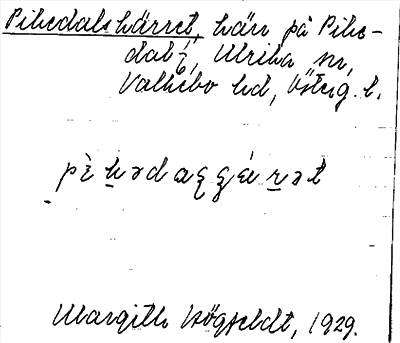 Pikedalskärret, kärr på Pike-
dal 1/6, Ulrika sn,
Valkebo hd, Österg. l.
Margith Högfeldt, 1929.